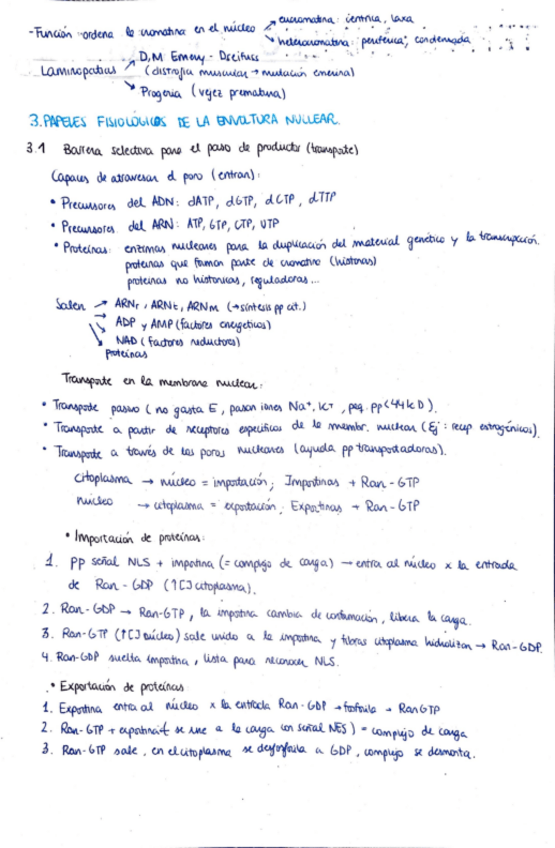 -Función ordena la cromatina en el núcleo → eucromatina: céntrica, laxa
→ heterocromatina: periférica, condensada
Laminopatías → D.M Emery-Dreifuss
(distrofia muscular → mutación emerina)
→ Progeria (vejez prematura)
3. PAPELES FISIOLÓGICOS DE LA ENVOLTURA NUCLEAR.
3.1 Barrera selectiva para el paso de productos (transporte)
Capaces de atravesar el poro (entran):
• Precursores del ADN: dATP, dGTP, dCTP, dTTP
• Precursores del ARN: ATP, GTP, CTP, UTP
• Proteínas: enzimas nucleares para la duplicación del material genético y la transcripción.
proteínas que forman parte de cromatina (histonas)
proteínas no histónicas, reguladoras...
Salen → ARNr, ARNt, ARNm (→síntesis pp cit.)
→ ADP y AMP (factores energéticos)
→ NAD (factores reductores)
proteínas
Transporte en la membrana nuclear:
• Transporte pasivo (no gasta E, pasan iones Na+, K+, peq. pp <44kD).
• Transporte a partir de receptores específicos de la membr. nuclear (Ej: recep estrogénicos).
• Transporte a través de los poros nucleares (ayuda pp transportadoras).
citoplasma → núcleo = importación; Importinas + Ran-GTP
núcleo → citoplasma = exportación; Exportinas + Ran-GTP
• Importación de proteínas:
1. pp señal NLS + importina (= complejo de carga) → entra al núcleo x la entrada
de Ran-GDP (↑[] citoplasma).
2. Ran-GDP → Ran-GTP, la importina cambia de conformación, libera la carga.
3. Ran-GTP (↑[] núcleo) sale unido a la importina y fibras citoplasma hidrolizan → Ran-GDP.
4. Ran-GDP suelta importina, lista para reconocer NLS.
• Exportación de proteínas
1. Exportina entra al núcleo x la entrada Ran-GDP → fosforila → RanGTP
2. Ran-GTP + exportina (se une a la carga con señal NES) = complejo de carga
3. Ran-GTP sale, en el citoplasma se desfosforila a GDP, complejo se desmonta.